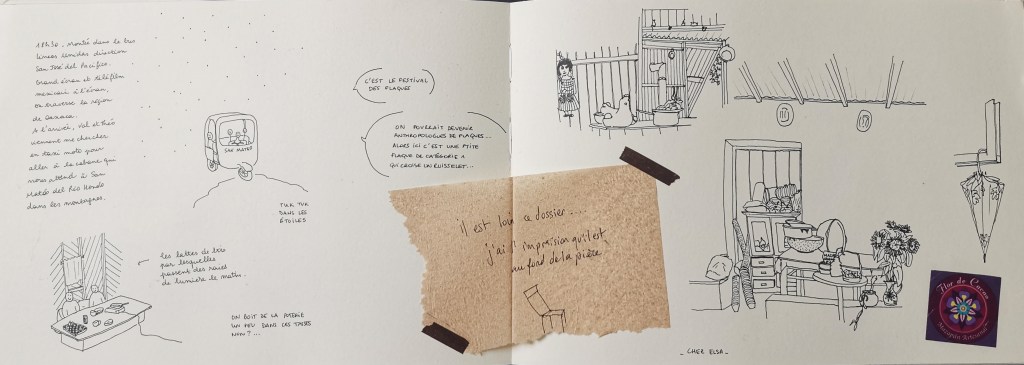 18h30. Monté dans le bus
lineas unidas direction
San José del Pacifico.
Grand écran et téléfilm
mexicain à l'écran,
on traverse la région
de Oaxaca.
A l'arrivée, Val et Théo
viennent me chercher
en taxi moto pour
aller à la cabane qui
nous attend à San
Matéo del Rio Hondo
dans les montagnes.
SAN MATEO
TUK TUK
DANS LES
ÉTOILES
les lattes de bois
par lesquelles
passent des raies
de lumière le matin.
ON BOIT DE LA POTERIE
UN PEU DANS CES TASSES
NON ? ...
C'EST LE FESTIVAL
DES FLAQUES
ON POURRAIT DEVENIR
ANTHROPOLOGUES DE FLAQUES...
ALORS ICI C'EST UNE PTITE
FLAQUE DE CATÉGORIE 1
QU'CREUSE LE RUISSELET...
il est loin ce dossier....
j'ai l'impression qu'il est
au fond de la pièce
_ CHER ELSA _
Flor de Cacao